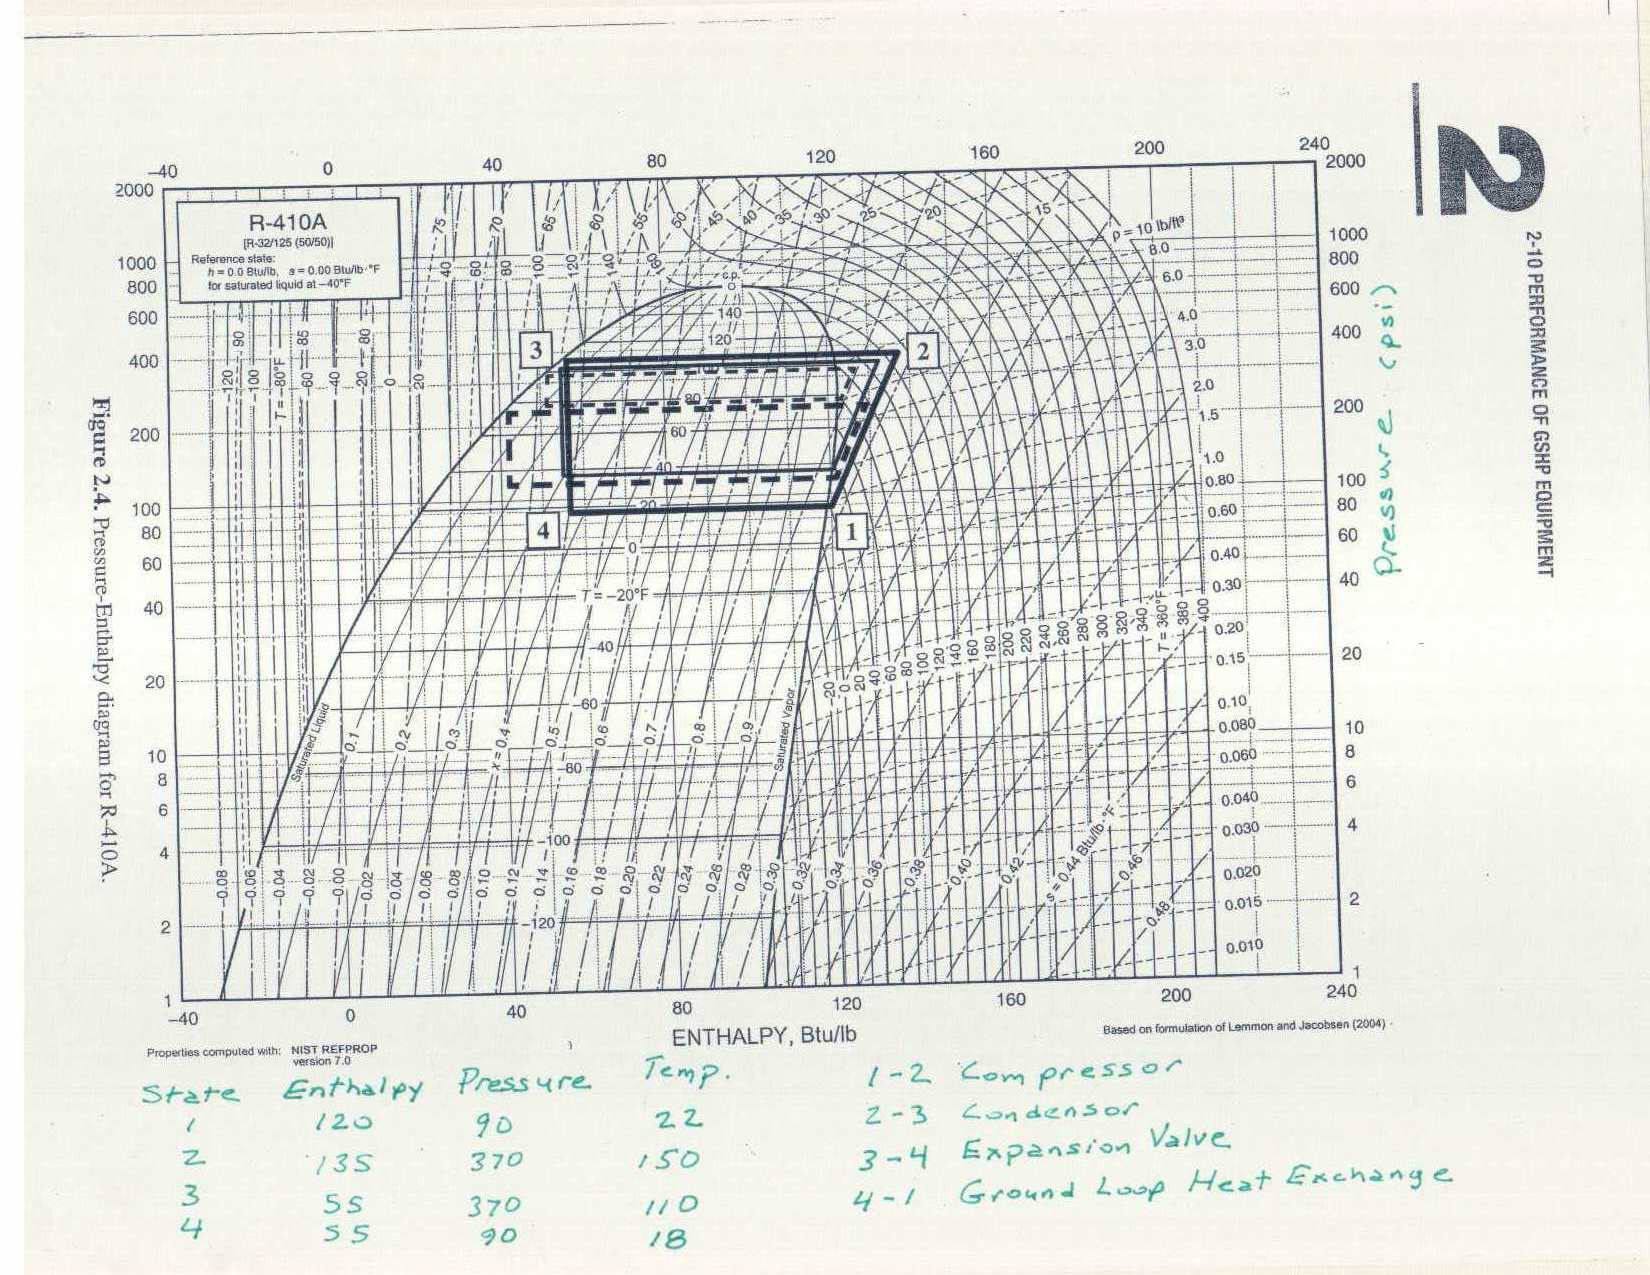 -40 0 40 80 120 160 200 240
2000
1000
800
600
400
200
100
80
60
40
20
10
8
6
4
2
1
R-410A
[R-32/125 (50/50)]
Reference state:
h = 0.0 Btu/lb, s = 0.00 Btu/lb·°F
for saturated liquid at -40°F
75 70 65 60 55 50 45 40 35 30 25 20 15
ρ = 10 lb/ft³
8.0
6.0
4.0
3.0
2.0
1.5
1.0
0.80
0.60
0.40
0.30
0.20
0.15
0.10
0.080
0.060
0.040
0.030
0.020
0.015
0.010
40 60 80 100 120 140
c.p.
140
120
80
60
40
20
0
T = -20°F
-40
-60
-80
-100
-120
-120 -100 T = -80°F -60 -40 -20 0 20
-90 -85 -80
3
2
4
1
Saturated Liquid
0.1 0.2 0.3 x = 0.4 0.5 0.6 0.7 0.8 0.9
Saturated Vapor
-20 0 20 40 60 80 100 120 140 160 180 200 220 240 260 280 300 320 340 T = 360°F 380 400
-0.08 -0.06 -0.04 -0.02 -0.00 0.02 0.04 0.06 0.08 0.10 0.12 0.14 0.16 0.18 0.20 0.22 0.24 0.26 0.28 0.30 0.32 0.34 0.36 0.38 0.40 0.42 s = 0.44 Btu/lb·°F 0.46 0.48
2000
1000
800
600
400
200
100
80
60
40
20
10
8
6
4
2
1
Pressure (psi)
-40 0 40 80 120 160 200 240
ENTHALPY, Btu/lb
Based on formulation of Lemmon and Jacobsen (2004)
Properties computed with: NIST REFPROP
version 7.0
Figure 2.4. Pressure-Enthalpy diagram for R-410A.
2
2-10 PERFORMANCE OF GSHP EQUIPMENT
State Enthalpy Pressure Temp.
1 120 90 22
2 135 370 150
3 55 370 110
4 55 90 18
1-2 Compressor
2-3 Condensor
3-4 Expansion Valve
4-1 Ground Loop Heat Exchange